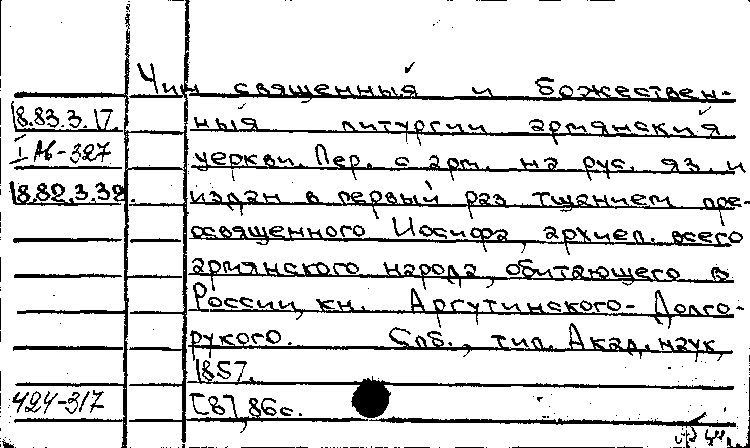 Чин священныя и божествен-
18.83.3.17. ныя литургии армянския
I А6-327 церкви. Пер. с арм. на рус. яз. и
18.82.3.32. издан в первый раз тщанием пре-
освященного Иосифа, архиеп. всего
армянского народа, обитающего в
России, кн. Аргутинского-Долго-
рукого. Спб., тип. Акад. наук,
1857.
424-317 [8], 86 с.